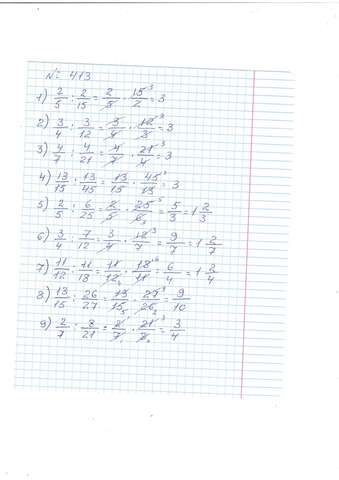 № 413
1) 2/5 : 2/15 = 2/5 · 15/2 = 3
2) 3/4 : 3/12 = 3/4 · 12/3 = 3
3) 4/7 : 4/21 = 4/7 · 21/4 = 3
4) 13/15 : 13/45 = 13/15 · 45/13 = 3
5) 2/5 : 6/25 = 2/5 · 25/6 = 5/3 = 1 2/3
6) 3/4 : 7/12 = 3/4 · 12/7 = 9/7 = 1 2/7
7) 11/12 : 11/18 = 11/12 · 18/11 = 6/4 = 1 2/4
8) 13/15 : 26/27 = 13/15 · 27/26 = 9/10
9) 2/7 : 8/21 = 2/7 · 21/8 = 3/4